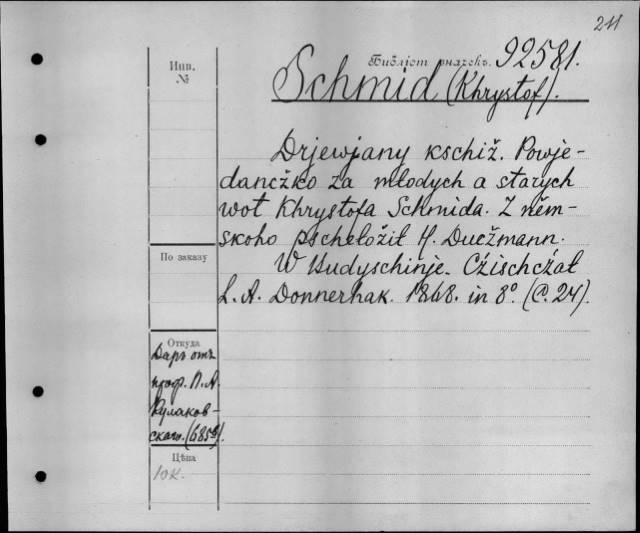 211
Библіот. значекъ. 92581.
Инв.
№
Schmid (Khrystof).
Drjewjany kschiž. Powje-
dančko za młodych a starych
wot Khrystofa Schmida. Z něm-
skoho pschełožił H. Dučžmann.
W Budyschinje. Cžischcžał
L. A. Donnerhak. 1868. in 8°. (С. 24).
По заказу
Откуда
Даръ отъ
проф. П. А.
Кулаков-
скаго. (685)
Цѣна
10 к.